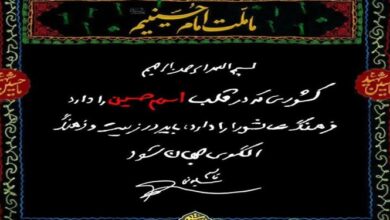 ما ملت امام حسینیم
بسم الله الرحمن الرحیم
کشوری که در قلب اسم حسین را دارد
فرهنگ عاشورا را دارد، باید در زیست و فرهنگ
الگوی جهان شود